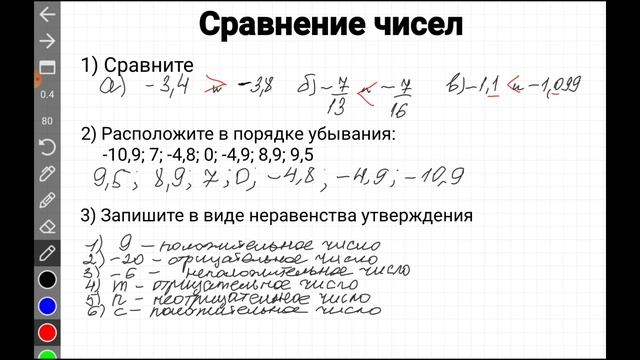 Сравнение чисел
1) Сравните
а) -3,4 > и -3,8 б) -7/13 < и -7/16 в) -1,1 < и -1,099
0.4
80
2) Расположите в порядке убывания:
-10,9; 7; -4,8; 0; -4,9; 8,9; 9,5
9,5; 8,9; 7; 0; -4,8; -4,9; -10,9
3) Запишите в виде неравенства утверждения
1) 9 - положительное число
2) -20 - отрицательное число
3) -6 - неположительное число
4) m - отрицательное число
5) n - неотрицательное число
6) c - положительное число